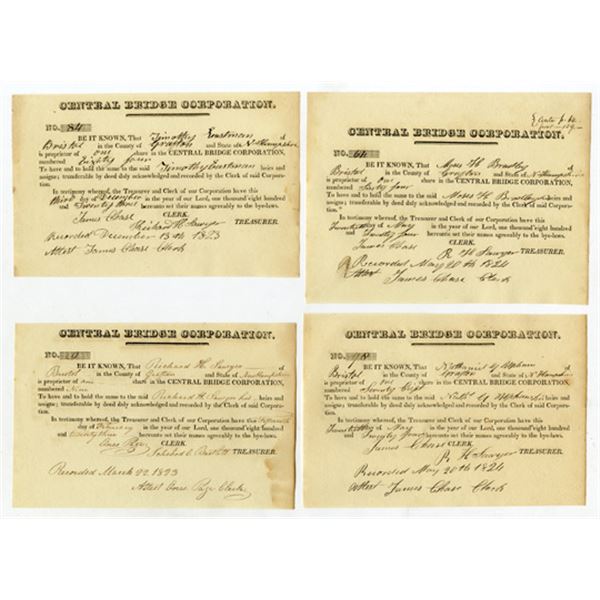 CENTRAL BRIDGE CORPORATION.
NO. 84
BE IT KNOWN, That Timothy Eastman of
Bristol in the County of Grafton and State of N Hampshire
is proprietor of one share in the CENTRAL BRIDGE CORPORATION,
numbered Eighty four
To have and to hold the same to the said Timothy Eastman heirs and
assigns; transferable by deed duly acknowledged and recorded by the Clerk of said Corpora-
tion.
In testimony whereof, the Treasurer and Clerk of our Corporation have this
Third day of December in the year of our Lord, one thousand eight hundred
and Twenty three hereunto set their names agreeably to the bye-laws.
James Chase CLERK.
Richard H. Sawyer TREASURER.
Recorded December 13th 1823
Attest James Chase Clerk
CENTRAL BRIDGE CORPORATION.
NO. 64
BE IT KNOWN, That Moses H Bradley of
Bristol in the County of Grafton and State of N Hampshire
is proprietor of one share in the CENTRAL BRIDGE CORPORATION,
numbered Sixty four
To have and to hold the same to the said Moses H Bradley heirs and
assigns; transferable by deed duly acknowledged and recorded by the Clerk of said Corpora-
tion.
In testimony whereof, the Treasurer and Clerk of our Corporation have this
day of May in the year of our Lord, one thousand eight hundred
and Twenty four hereunto set their names agreeably to the bye-laws.
James Chase CLERK.
R H Sawyer TREASURER.
Recorded May 20th 1824
Attest James Chase Clerk
CENTRAL BRIDGE CORPORATION.
NO. 9
BE IT KNOWN, That Richard H. Sawyer of
Bristol in the County of Grafton and State of New Hampshire
is proprietor of one share in the CENTRAL BRIDGE CORPORATION,
numbered Nine
To have and to hold the same to the said Richard H Sawyer his heirs and
assigns; transferable by deed duly acknowledged and recorded by the Clerk of said Corpora-
tion.
In testimony whereof, the Treasurer and Clerk of our Corporation have this Fifteenth
day of February in the year of our Lord, one thousand eight hundred
and twenty three hereunto set their names agreeably to the bye-laws.
CLERK.
TREASURER.
Recorded March 22 1823
Attest Clerk
CENTRAL BRIDGE CORPORATION.
NO. 78
BE IT KNOWN, That Nathaniel G Upham of
Bristol in the County of Grafton and State of N Hampshire
is proprietor of one share in the CENTRAL BRIDGE CORPORATION,
numbered Seventy Eight
To have and to hold the same to the said Nathl G Upham his heirs and
assigns; transferable by deed duly acknowledged and recorded by the Clerk of said Corpora-
tion.
In testimony whereof, the Treasurer and Clerk of our Corporation have this
day of May in the year of our Lord, one thousand eight hundred
and Twenty four hereunto set their names agreeably to the bye-laws.
James Chase CLERK.
R H Sawyer TREASURER.
Recorded May 20th 1824
Attest James Chase Clerk